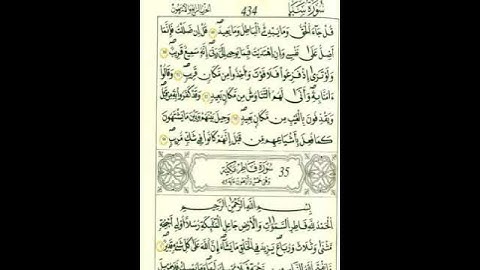 سُورَةُ سَبَإٍ 434 الجزء الثاني والعشرون
قُلْ جَآءَ الْحَقُّ وَمَا يُبْدِئُ الْبَاطِلُ وَمَا يُعِيدُ قُلْ إِن ضَلَلْتُ فَإِنَّمَآ
أَضِلُّ عَلَىٰ نَفْسِى وَإِنِ اهْتَدَيْتُ فَبِمَا يُوحِىٓ إِلَىَّ رَبِّىٓ إِنَّهُ سَمِيعٌ قَرِيبٌ
وَلَوْ تَرَىٰٓ إِذْ فَزِعُوا فَلَا فَوْتَ وَأُخِذُوا مِن مَّكَانٍ قَرِيبٍ وَقَالُوٓا
ءَامَنَّا بِهِ وَأَنَّىٰ لَهُمُ التَّنَاوُشُ مِن مَّكَانٍ بَعِيدٍ وَقَدْ كَفَرُوا بِهِ مِن قَبْلُ
وَيَقْذِفُونَ بِالْغَيْبِ مِن مَّكَانٍ بَعِيدٍ وَحِيلَ بَيْنَهُمْ وَبَيْنَ مَا يَشْتَهُونَ
كَمَا فُعِلَ بِأَشْيَاعِهِم مِّن قَبْلُ إِنَّهُمْ كَانُوا فِى شَكٍّ مُّرِيبٍ
35 سُورَةُ فَاطِرٍ مَكِّيَّةٌ
بِسْمِ اللَّهِ الرَّحْمَٰنِ الرَّحِيمِ
الْحَمْدُ لِلَّهِ فَاطِرِ السَّمَٰوَٰتِ وَالْأَرْضِ جَاعِلِ الْمَلَٰٓئِكَةِ رُسُلًا أُو۟لِىٓ أَجْنِحَةٍ
مَّثْنَىٰ وَثُلَٰثَ وَرُبَٰعَ يَزِيدُ فِى الْخَلْقِ مَا يَشَآءُ إِنَّ اللَّهَ عَلَىٰ كُلِّ شَىْءٍ قَدِيرٌ